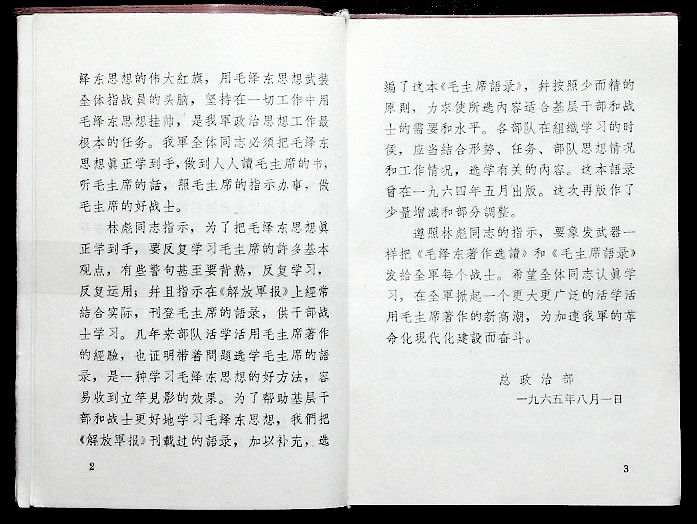 泽东思想的伟大红旗，用毛泽东思想武装
全体指战員的头脑，坚持在一切工作中用
毛泽东思想挂帅，是我軍政治思想工作最
根本的任务。我軍全体同志必須把毛泽东
思想眞正学到手，做到人人讀毛主席的书，
听毛主席的話，照毛主席的指示办事，做
毛主席的好战士。
林彪同志指示，为了把毛泽东思想眞
正学到手，要反复学习毛主席的許多基本
观点，有些警句甚至要背熟，反复学习，
反复运用；并且指示在《解放軍报》上經常
結合实际，刊登毛主席的語录，供干部战
士学习。几年来部队活学活用毛主席著作
的經驗，也证明带着問題选学毛主席的語
录，是一种学习毛泽东思想的好方法，容
易收到立竿見影的效果。为了帮助基层干
部和战士更好地学习毛泽东思想，我們把
《解放軍报》刊載过的語录，加以补充，选
2
編了这本《毛主席語录》，并按照少而精的
原則，力求使所选內容适合基层干部和战
士的需要和水平。各部队在組織学习的时
候，应当結合形势、任务、部队思想情况
和工作情况，选学有关的內容。这本語录
曾在一九六四年五月出版。这次再版作了
少量增减和部分調整。
遵照林彪同志的指示，要象发武器一
样把《毛泽东著作选讀》和《毛主席語录》
发給全軍每个战士。希望全体同志认眞学
习，在全軍掀起一个更大更广泛的活学活
用毛主席著作的新高潮，为加速我軍的革
命化現代化建設而奋斗。
总政治部
一九六五年八月一日
3